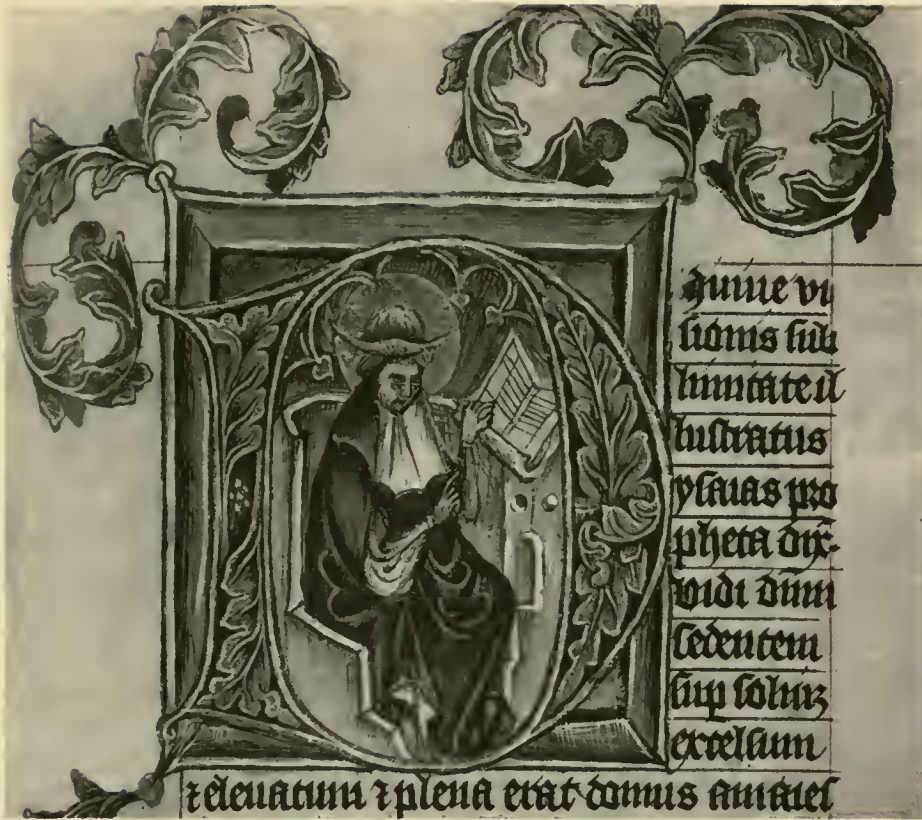 Diuine vi
sionis sub
limitate il
lustratus
ysaias pro
pheta dix̄·
vidi dn̄m
sedentem
sup soliuꝫ
excelsum
⁊ eleuatum ⁊ plena erat domus a maies